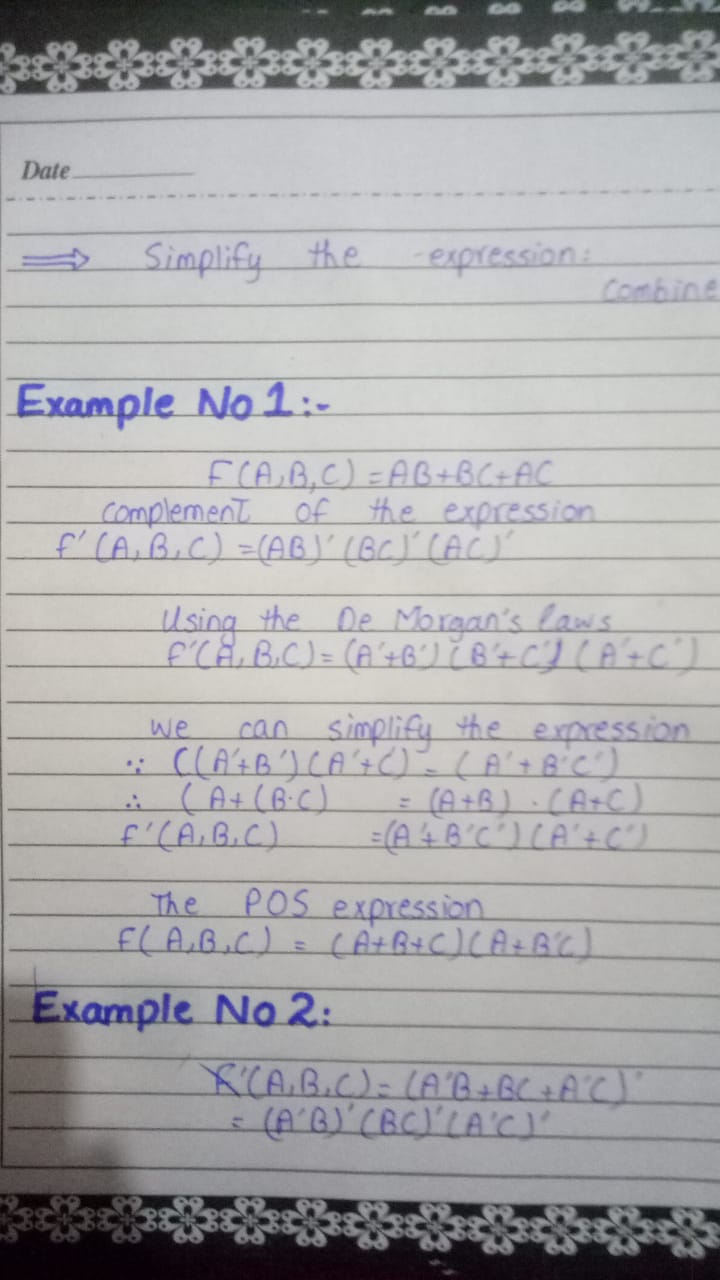 Date
⟹ Simplify the expression:
Combine
Example No 1:-
F(A,B,C) = AB+BC+AC
complement of the expression
f'(A,B,C) =(AB)'(BC)'(AC)'
Using the De Morgan's laws
f'(A,B,C)= (A'+B')(B'+C')(A'+C')
We can simplify the expression
∵ ((A'+B')(A'+C) = (A'+B'C')
∴ (A+(B·C) = (A+B).(A+C)
f'(A,B,C) =(A'+B'C')(A'+C')
The POS expression
F(A,B,C) = (A+B+C)(A+B'C)
Example No 2:
F'(A,B,C)= (A'B+BC+A'C)'
= (A'B)'(BC)'(A'C)'